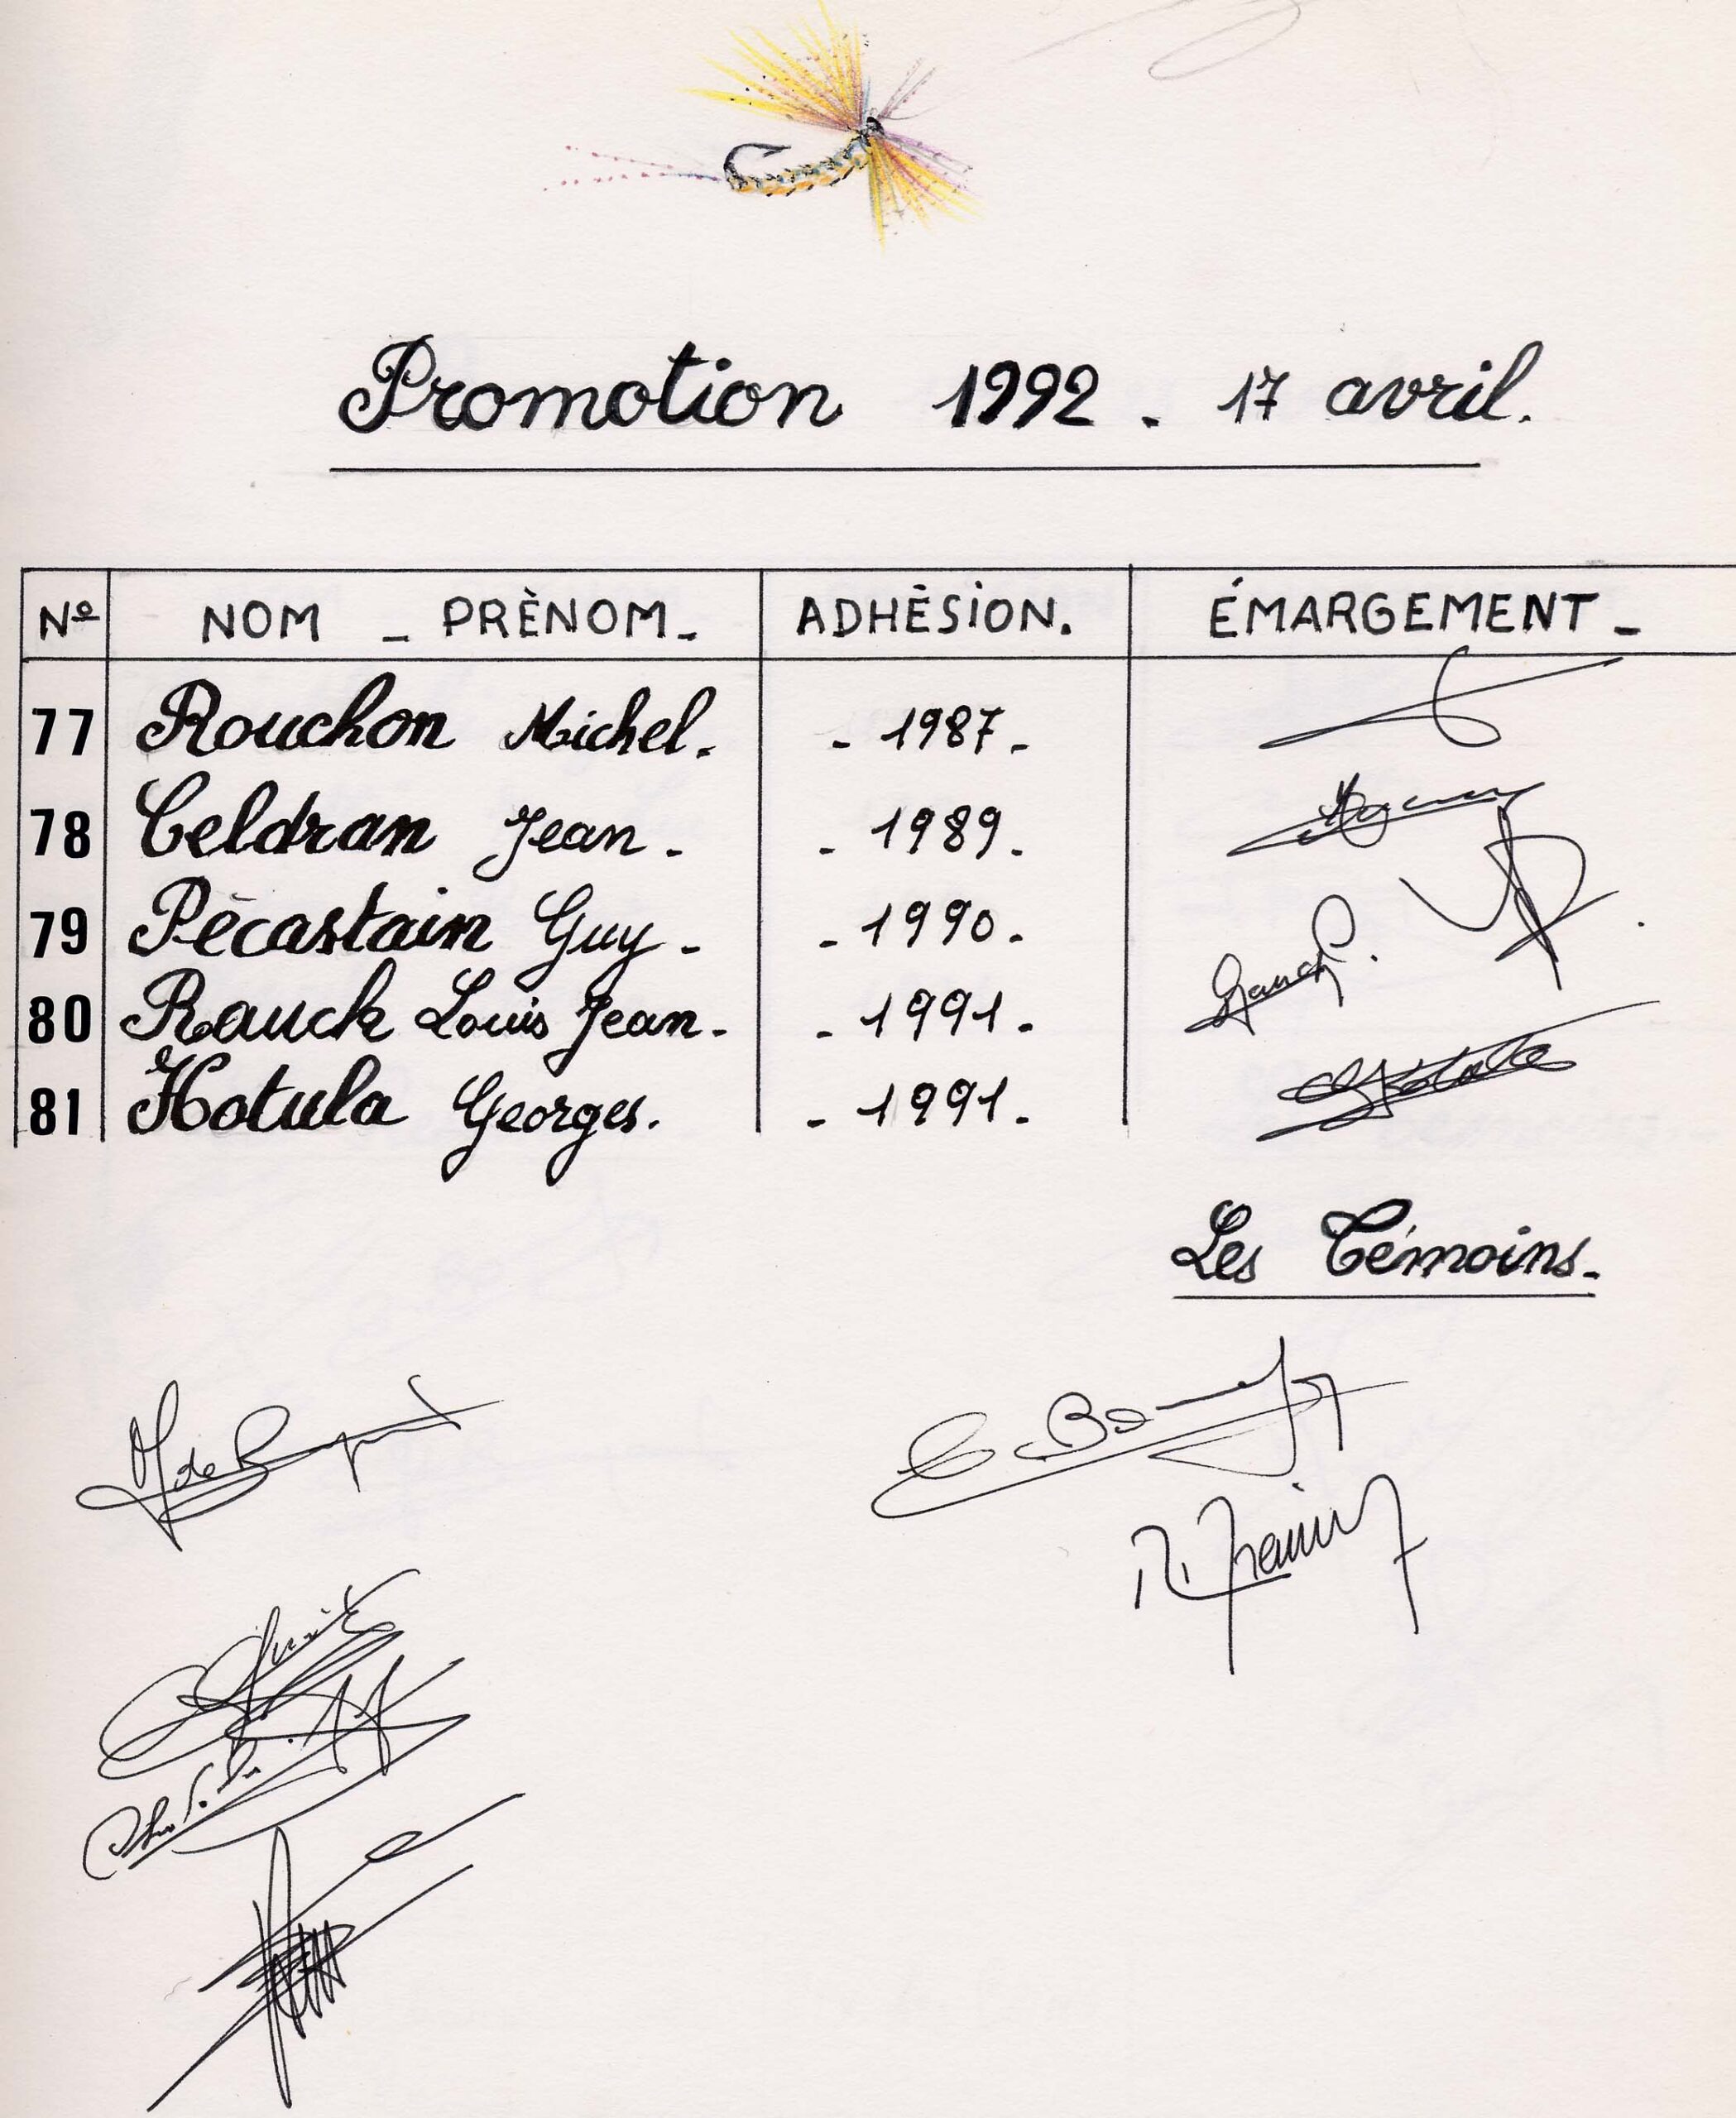 Promotion 1992 - 17 avril.
Nº NOM - PRÈNOM - ADHÉSION. ÉMARGEMENT -
77 Rouchon Michel. - 1987 -
78 Celdran Jean - - 1989 -
79 Pécastain Guy - - 1990 -
80 Rauck Louis Jean - - 1991 -
81 Hotula Georges. - 1991 -
Les Témoins -